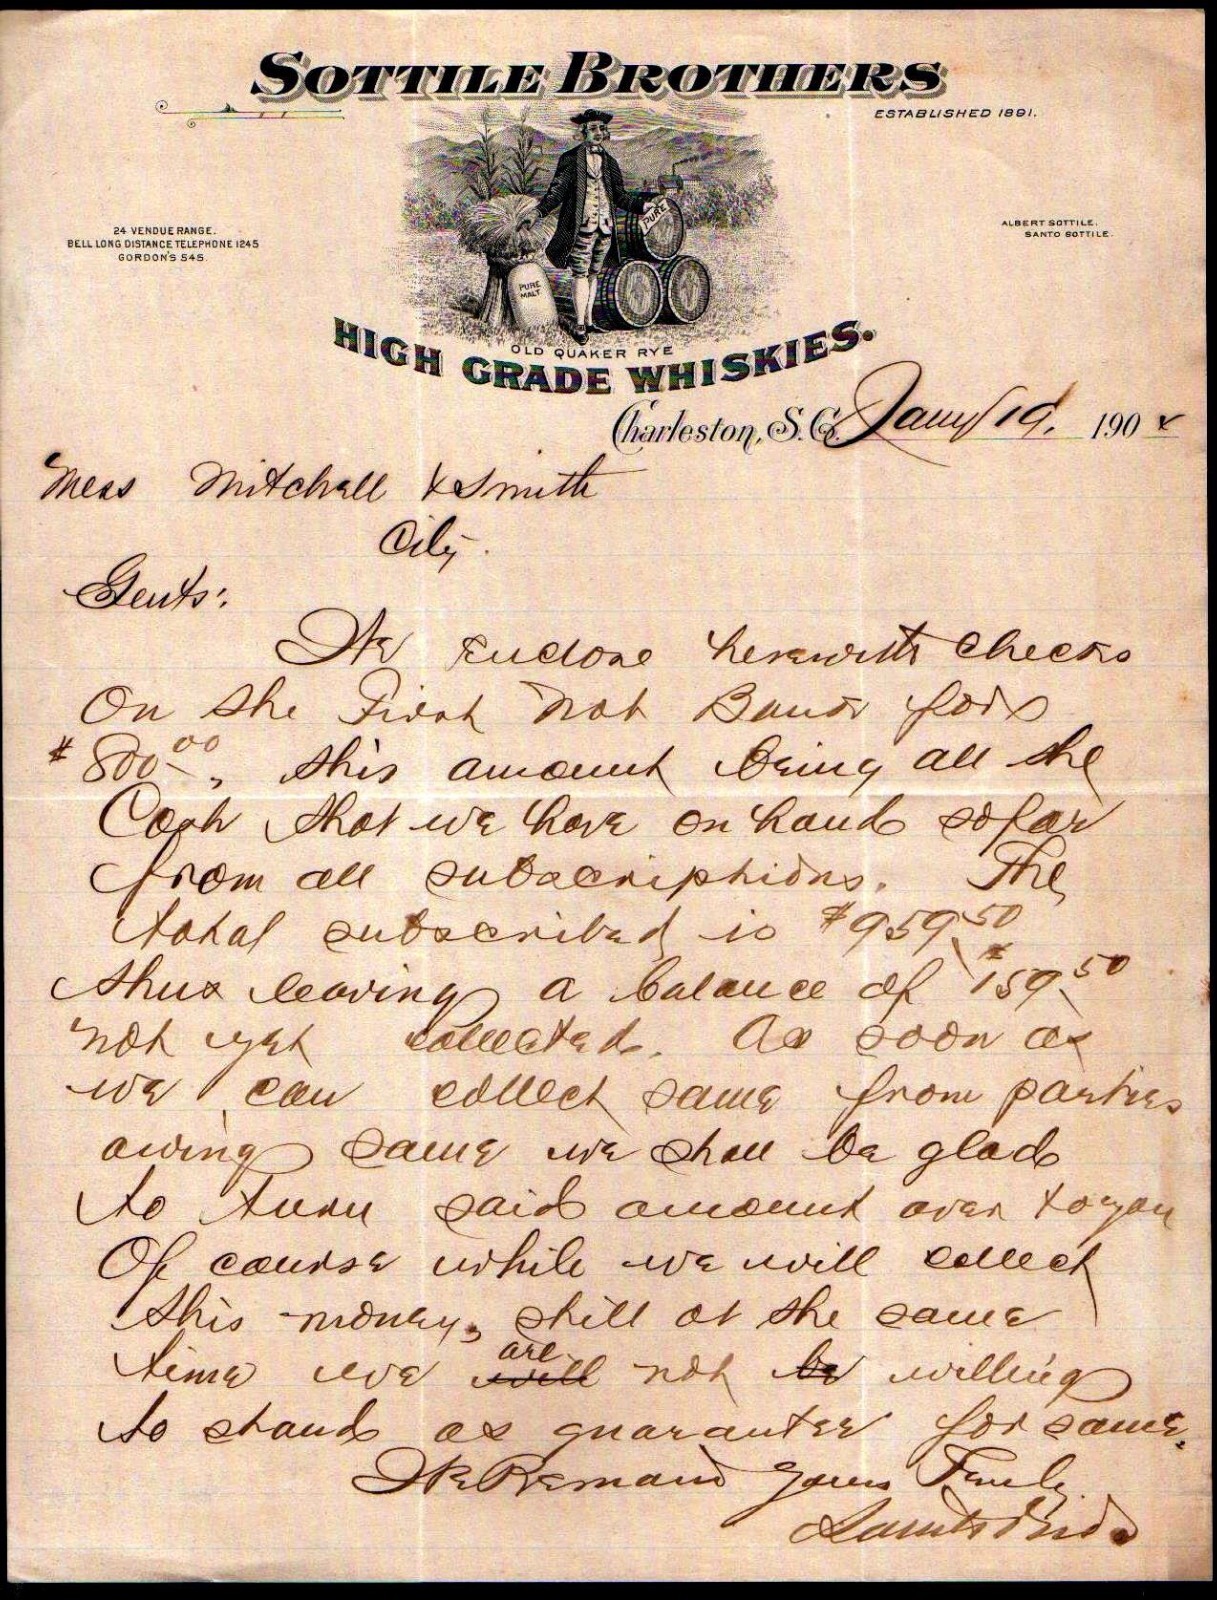 SOTTILE BROTHERS
ESTABLISHED 1891.
24 VENDUE RANGE.
BELL LONG DISTANCE TELEPHONE 1245
GORDON'S 545.
ALBERT SOTTILE.
SANTO SOTTILE.
PURE
PURE
MALT
OLD QUAKER RYE
HIGH GRADE WHISKIES.
Charleston, S.C. Jany 19. 1904
Mess Mitchell & Smith
City.
Gents:
We enclose herewith checks
On the First Nat Bank for
$800.00, this amount being all the
Cash that we have on hand so far
from all subscriptions. The
total subscribed is $959.50
thus leaving a balance of $159.50
not yet collected. As soon as
we can collect same from parties
owing same we shall be glad
to turn said amount over to you
Of course while we will collect
this money, still at the same
time we will are not be willing
to stand as guarantee for same.
We Remain Yours Truly
Bros.